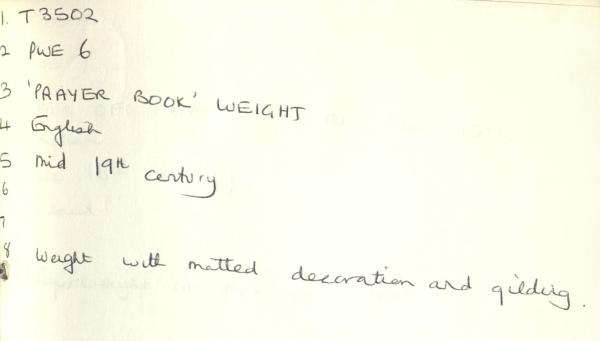 1. T3502
2 PWE 6
3 'PRAYER BOOK' WEIGHT
4 English
5 mid 19th century
6
7
8 Weight with matted decoration and gilding.